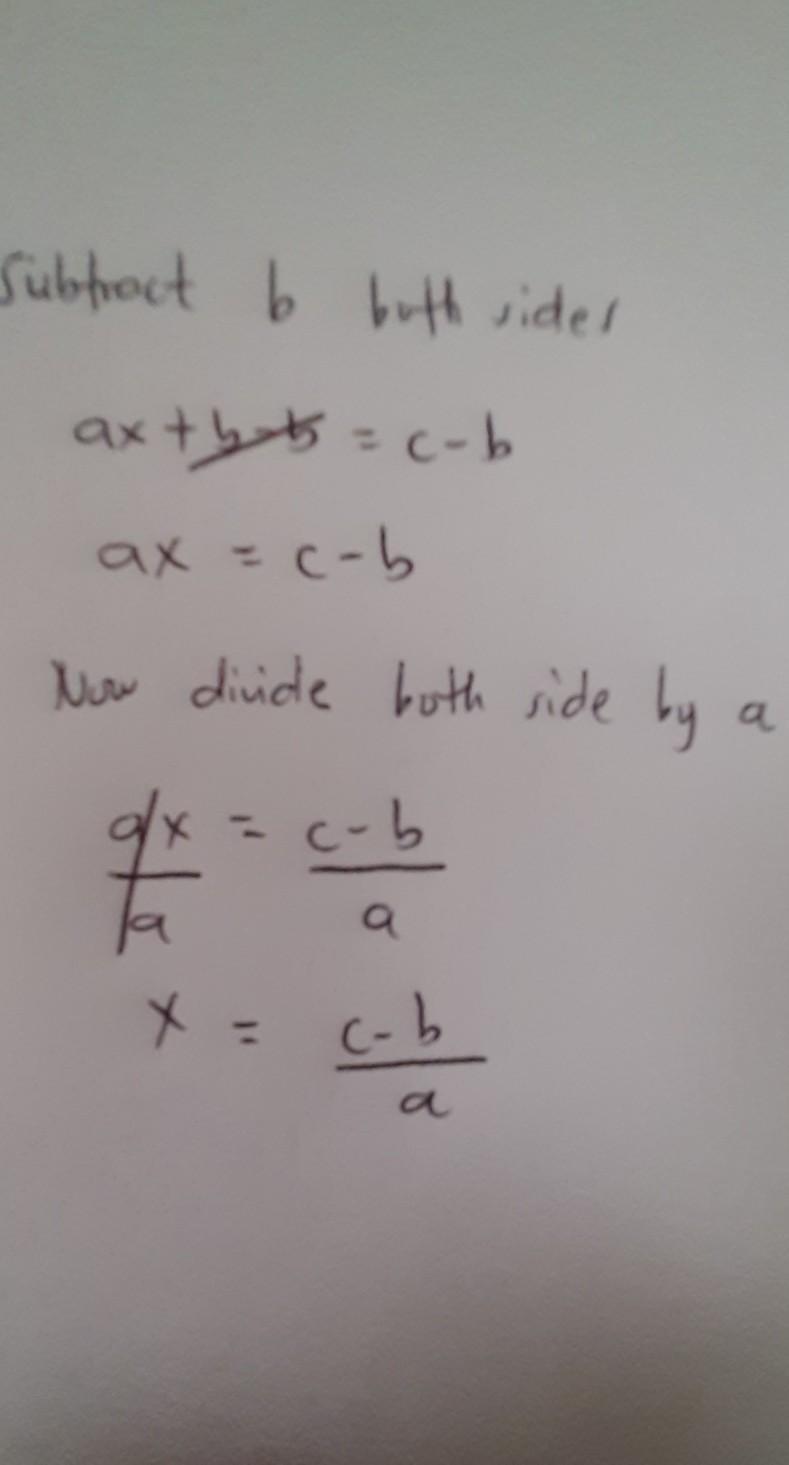 Subtract b both sides
ax + b - b = c - b
ax = c - b
Now divide both side by a
ax/a = c - b/a
x = c - b/a